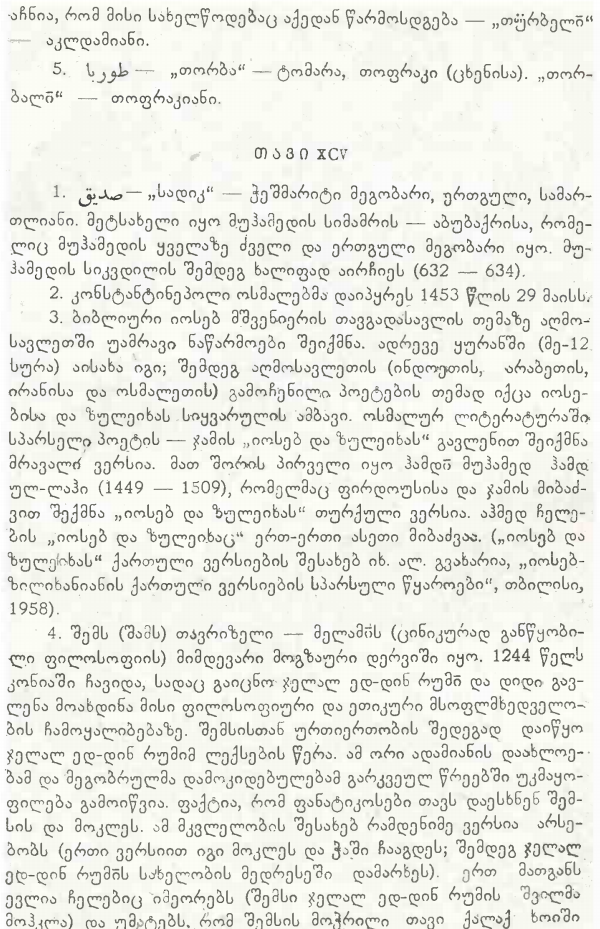 აჩნია, რომ მისი სახელწოდებაც აქედან წარმოსდგება — „თჳრბელი̄“
— აკლდამიანი.
5. طوربا — „თორბა“ — ტომარა, თოფრაკი (ცხენისა). „თორ-
ბალი̄“ — თოფრაკიანი.
თავი XCV
1. صديق — „სადიკ“ — ჭეშმარიტი მეგობარი, ერთგული, სამარ-
თლიანი. მეტსახელი იყო მუჰამედის სიმამრის — აბუბაქრისა, რომე-
ლიც მუჰამედის ყველაზე ძველი და ერთგული მეგობარი იყო. მუ-
ჰამედის სიკვდილის შემდეგ ხალიფად აირჩიეს (632 — 634).
2. კონსტანტინეპოლი ოსმალებმა დაიპყრეს 1453 წლის 29 მაისს.
3. ბიბლიური იოსებ მშვენიერის თავგადასავლის თემაზე აღმო-
სავლეთში უამრავი ნაწარმოები შეიქმნა. ადრევე ყურანში (მე-12
სურა) აისახა იგი; შემდეგ აღმოსავლეთის (ინდოეთის, არაბეთის,
ირანისა და ოსმალეთის) გამოჩენილი პოეტების თემად იქცა იოსე-
ბისა და ზულეიხას სიყვარულის ამბავი. ოსმალურ ლიტერატურაში
სპარსელი პოეტის — ჯამის „იოსებ და ზულეიხას“ გავლენით შეიქმნა
მრავალი ვერსია. მათ შორის პირველი იყო ჰამდი̄ მუჰამედ ჰამდ
ულ-ლაჰი (1449 — 1509), რომელმაც ფირდოუსისა და ჯამის მიბაძ-
ვით შექმნა „იოსებ და ზულეიხას“ თურქული ვერსია. აჰმედ ჩელე-
ბის „იოსებ და ზულეიხაც“ ერთ-ერთი ასეთი მიბაძვაა. („იოსებ და
ზულეიხას“ ქართული ვერსიების შესახებ იხ. ალ. გვახარია, „იოსებ-
ზილიხანიანის ქართული ვერსიების სპარსული წყაროები“, თბილისი,
1958).
4. შემს (შამს) თავრიზელი — მელამი̄ს (ცინიკურად განწყობი-
ლი ფილოსოფიის) მიმდევარი მოგზაური დერვიში იყო. 1244 წელს
კონიაში ჩავიდა, სადაც გაიცნო ჯელალ ედ-დინ რუმი̄ და დიდი გავ-
ლენა მოახდინა მისი ფილოსოფიური და ეთიკური მსოფლმხედველო-
ბის ჩამოყალიბებაზე. შემსისთან ურთიერთობის შედეგად დაიწყო
ჯელალ ედ-დინ რუმიმ ლექსების წერა. ამ ორი ადამიანის დაახლოე-
ბამ და მეგობრულმა დამოკიდებულებამ გარკვეულ წრეებში უკმაყო-
ფილება გამოიწვია. ფაქტია, რომ ფანატიკოსები თავს დაესხნენ შემ-
სის და მოკლეს. ამ მკვლელობის შესახებ რამდენიმე ვერსია არსე-
ბობს (ერთი ვერსიით იგი მოკლეს და ჭაში ჩააგდეს; შემდეგ ჯელალ
ედ-დინ რუმი̄ს სახელობის მედრესეში დამარხეს). ერთ მათგანს
ევლია ჩელებიც იმეორებს (შემსი ჯელალ ედ-დინ რუმის შვილმა
მოჰკლა) და უმატებს, რომ შემსის მოჭრილი თავი ქალაქ ხოიში